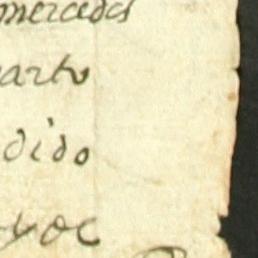 mercedes
arto
dido
yoc